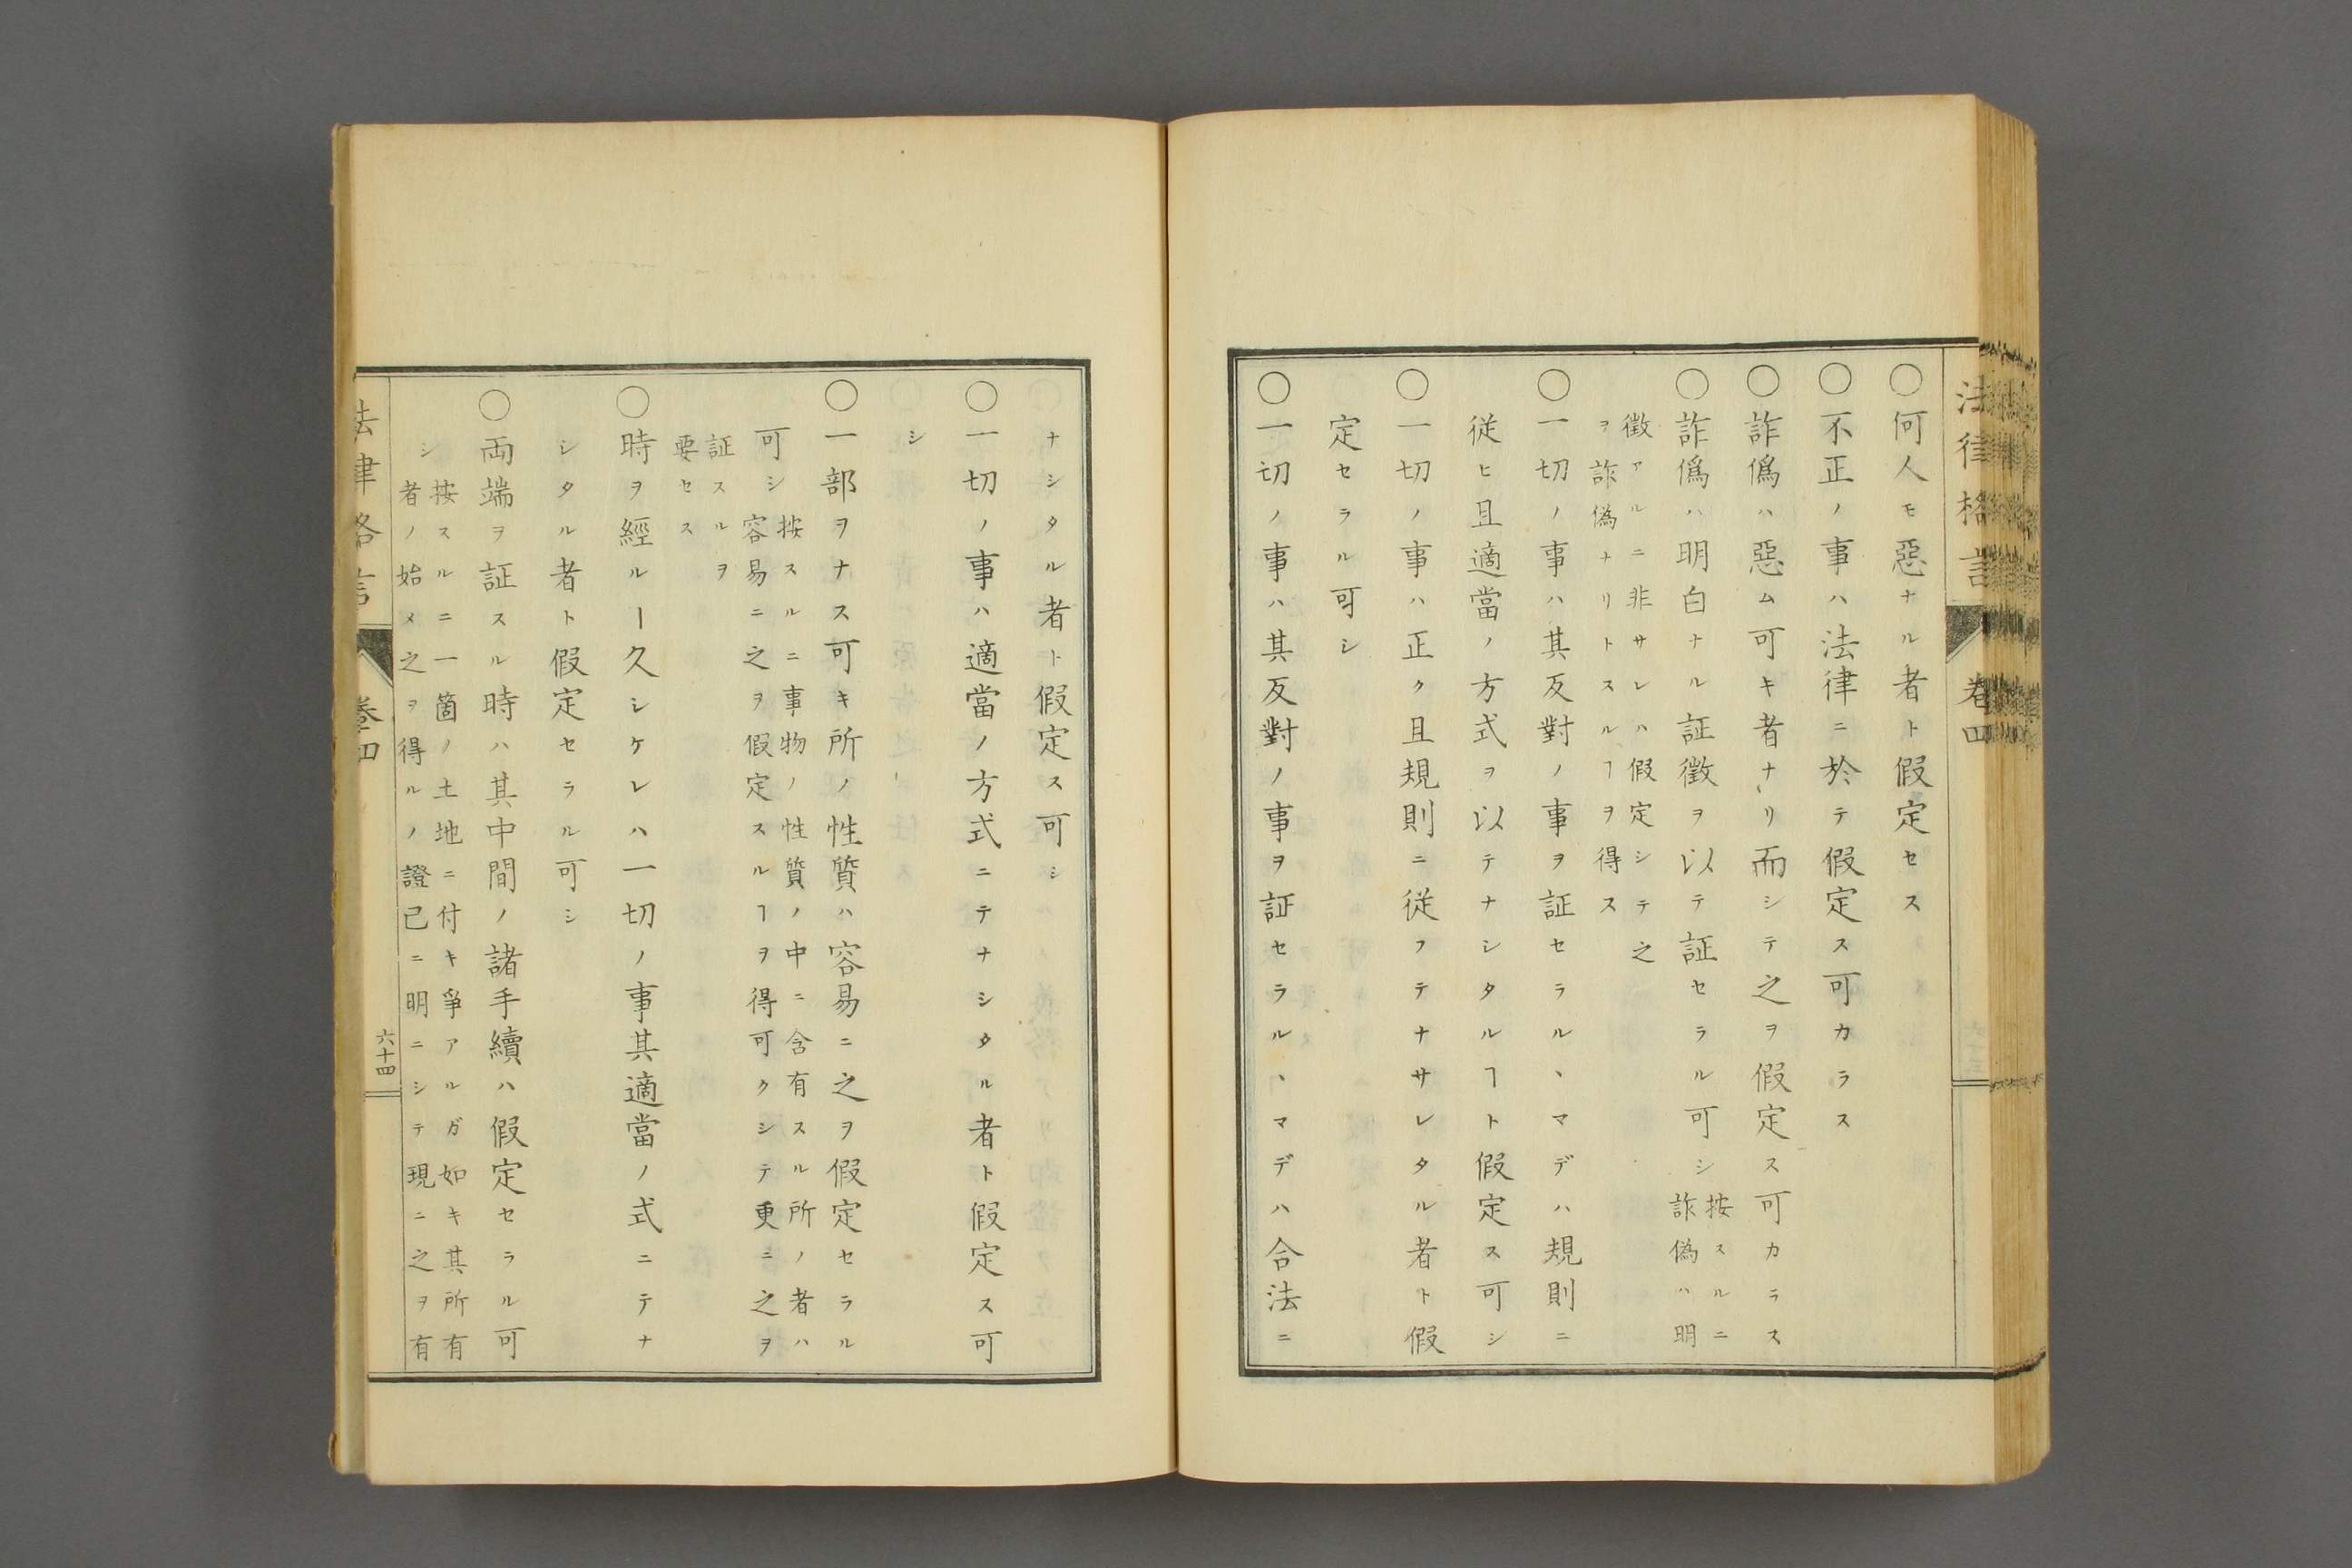 法律格言 卷四
○何人モ惡ナル者ト假定セス
○不正ノ事ハ法律ニ於テ假定ス可カラス
○詐僞ハ惡ム可キ者ナリ而シテ之ヲ假定ス可カラス
○詐僞ハ明白ナル証徵ヲ以テ証セラル可シ
按スルニ
詐偽ハ明
徵アルニ非サレハ假定シテ之
ヲ詐偽ナリトスルヿヲ得ス
○一切ノ事ハ其反對ノ事ヲ証セラルヽマデハ規則ニ
従ヒ且適當ノ方式ヲ以テナシタルヿト假定ス可シ
○一切ノ事ハ正ク且規則ニ従フテナサレタル者ト假
定セラル可シ
○一切ノ事ハ其反對ノ事ヲ証セラルヽマデハ合法ニ
ナシタル者ト假定ス可シ
○一切ノ事ハ適當ノ方式ニテナシタル者ト假定ス可
シ
○一部ヲナス可キ所ノ性質ハ容易ニ之ヲ假定セラル
可シ
按スルニ事物ノ性質ノ中ニ含有スル所ノ者ハ
容易ニ之ヲ假定スルヿヲ得可クシテ更ニ之ヲ
証スルヲ
要セス
○時ヲ經ルー久シケレハ一切ノ事其適當ノ式ニテナ
シタル者ト假定セラル可シ
○両端ヲ証スル時ハ其中間ノ諸手續ハ假定セラル可
シ
按スルニ一箇ノ土地ニ付キ爭アルガ如キ其所有
者ノ始メ之ヲ得ルノ證已ニ明ニシテ現ニ之ヲ有
法律格言 卷四 六十四